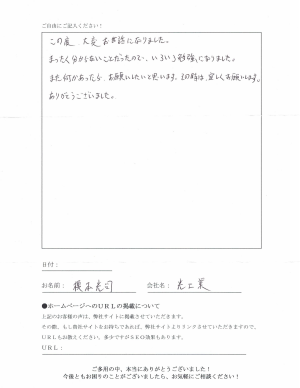 ご自由にご記入ください！
この度、大変お世話になりました。
まったく分からないことだったので、いろいろ勉強になりました。
また何かあったら、お願いしたいと思います。その時は、宜しくお願いします。
ありがとうございました。
日付：
お名前：
会社名：
●ホームページへのＵＲＬの掲載について
上記のお客様の声は、弊社サイトに掲載させていただきます。
その際、もし貴社サイトをお持ちであれば、弊社サイトよりリンクさせていただきますので、
ＵＲＬもお教えください。多少ですがＳＥＯ効果もあります。
ＵＲＬ：
ご多用の中、本当にありがとうございました！
今後ともお困りのことがございましたら、お気軽にご相談ください！